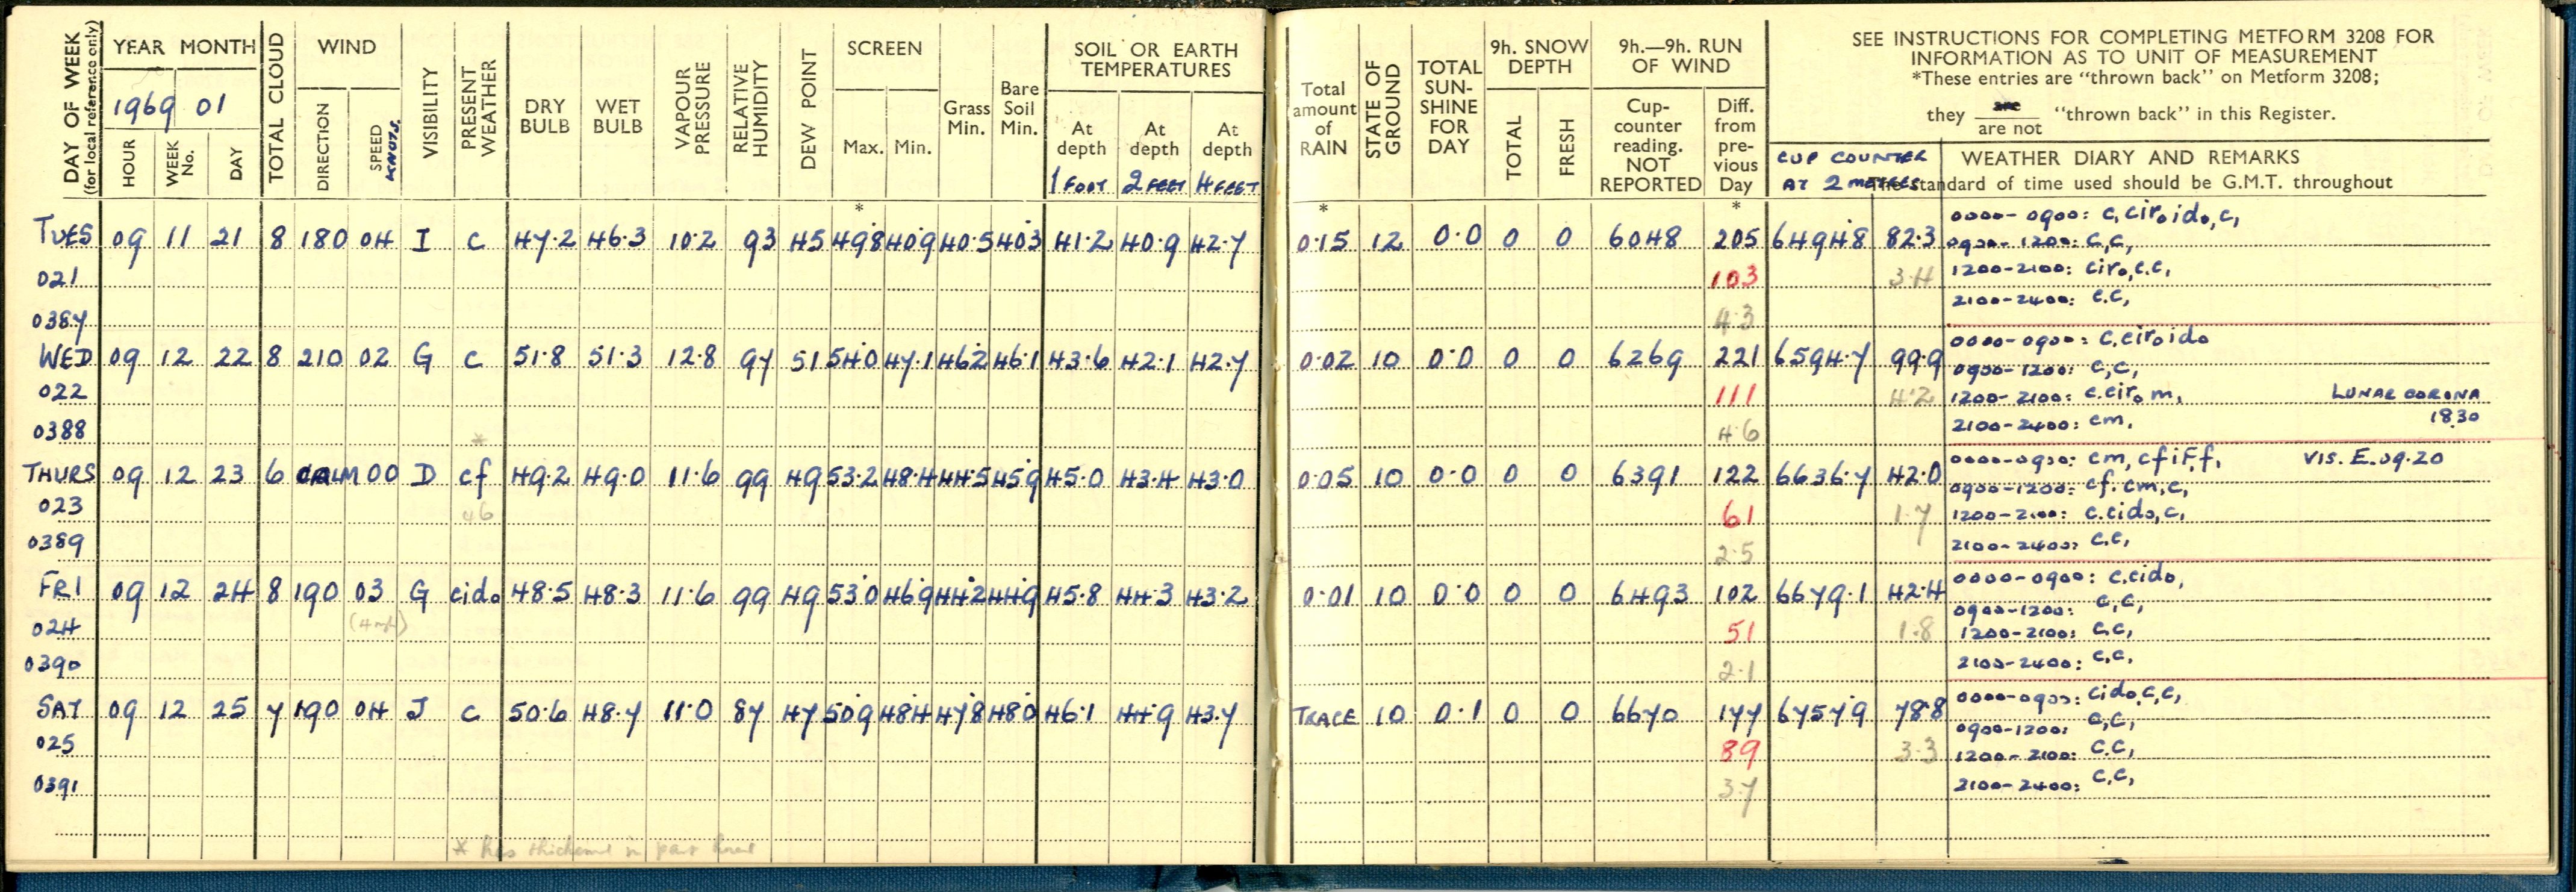 DAY OF WEEK
(for local reference only)
YEAR MONTH
1969 01
HOUR
WEEK No.
DAY
TOTAL CLOUD
WIND
DIRECTION
SPEED
KNOTS.
VISIBILITY
PRESENT WEATHER
DRY BULB
WET BULB
VAPOUR PRESSURE
RELATIVE HUMIDITY
DEW POINT
SCREEN
Max. Min.
Grass Min.
Bare Soil Min.
SOIL OR EARTH TEMPERATURES
At depth 1 FOOT
At depth 2 FEET
At depth 4 FEET
Total amount of RAIN
STATE OF GROUND
TOTAL SUN-SHINE FOR DAY
9h. SNOW DEPTH
TOTAL
FRESH
9h.—9h. RUN OF WIND
Cup-counter reading. NOT REPORTED
Diff. from pre-vious Day
SEE INSTRUCTIONS FOR COMPLETING METFORM 3208 FOR
INFORMATION AS TO UNIT OF MEASUREMENT
*These entries are "thrown back" on Metform 3208;
they are / are not "thrown back" in this Register.
CUP COUNTER
AT 2 METRES
WEATHER DIARY AND REMARKS
The standard of time used should be G.M.T. throughout
* * *
TUES 09 11 21 8 180 04 I c 47.2 46.3 10.2 93 45 49.8 40.9 40.5 40.3 41.2 40.9 42.7 0.15 12 0.0 0 0 6048 205 6494.8 82.3
0000-0900: c, ciroido, c,
0900-1200: c,c,
021 103 3.4 1200-2100: ciro,c.c,
0387 4.3 2100-2400: c.c,
WED 09 12 22 8 210 02 G c 51.8 51.3 12.8 97 51 54.0 47.1 46.2 46.1 43.6 42.1 42.7 0.02 10 0.0 0 0 6269 221 6594.7 99.9
0000-0900: c.ciroido
0900-1200: c,c,
022 111 4.2 1200-2100: c.ciro m, LUNAR CORONA
0388 4.6 2100-2400: cm, 18.30
*
THURS 09 12 23 6 CALM 00 D cf 49.2 49.0 11.6 99 49 53.2 48.4 44.5 45.9 45.0 43.4 43.0 0.05 10 0.0 0 0 6391 122 6636.7 42.0
0000-0900: cm, cfiFf, VIS. E. 09.20
0900-1200: cf. cm,c,
023 46 61 1.7 1200-2100: c.cido,c,
0389 2.5 2100-2400: c.c,
FRI 09 12 24 8 190 03 G cido 48.5 48.3 11.6 99 49 53.0 46.9 44.2 44.9 45.8 44.3 43.2 0.01 10 0.0 0 0 6493 102 6679.1 42.4
0000-0900: c.cido,
0900-1200: c,c,
024 51 1.8 1200-2100: c.c,
0390 2.1 2100-2400: c.c,
SAT 09 12 25 7 190 04 J c 50.6 48.7 11.0 87 47 50.9 48.4 47.8 48.0 46.1 44.9 43.7 TRACE 10 0.1 0 0 6670 177 6757.9 78.8
0000-0900: cido,c,c,
0900-1200: c,c,
025 89 3.3 1200-2100: c.c,
0391 3.7 2100-2400: c,c,
* has thickened in past hour